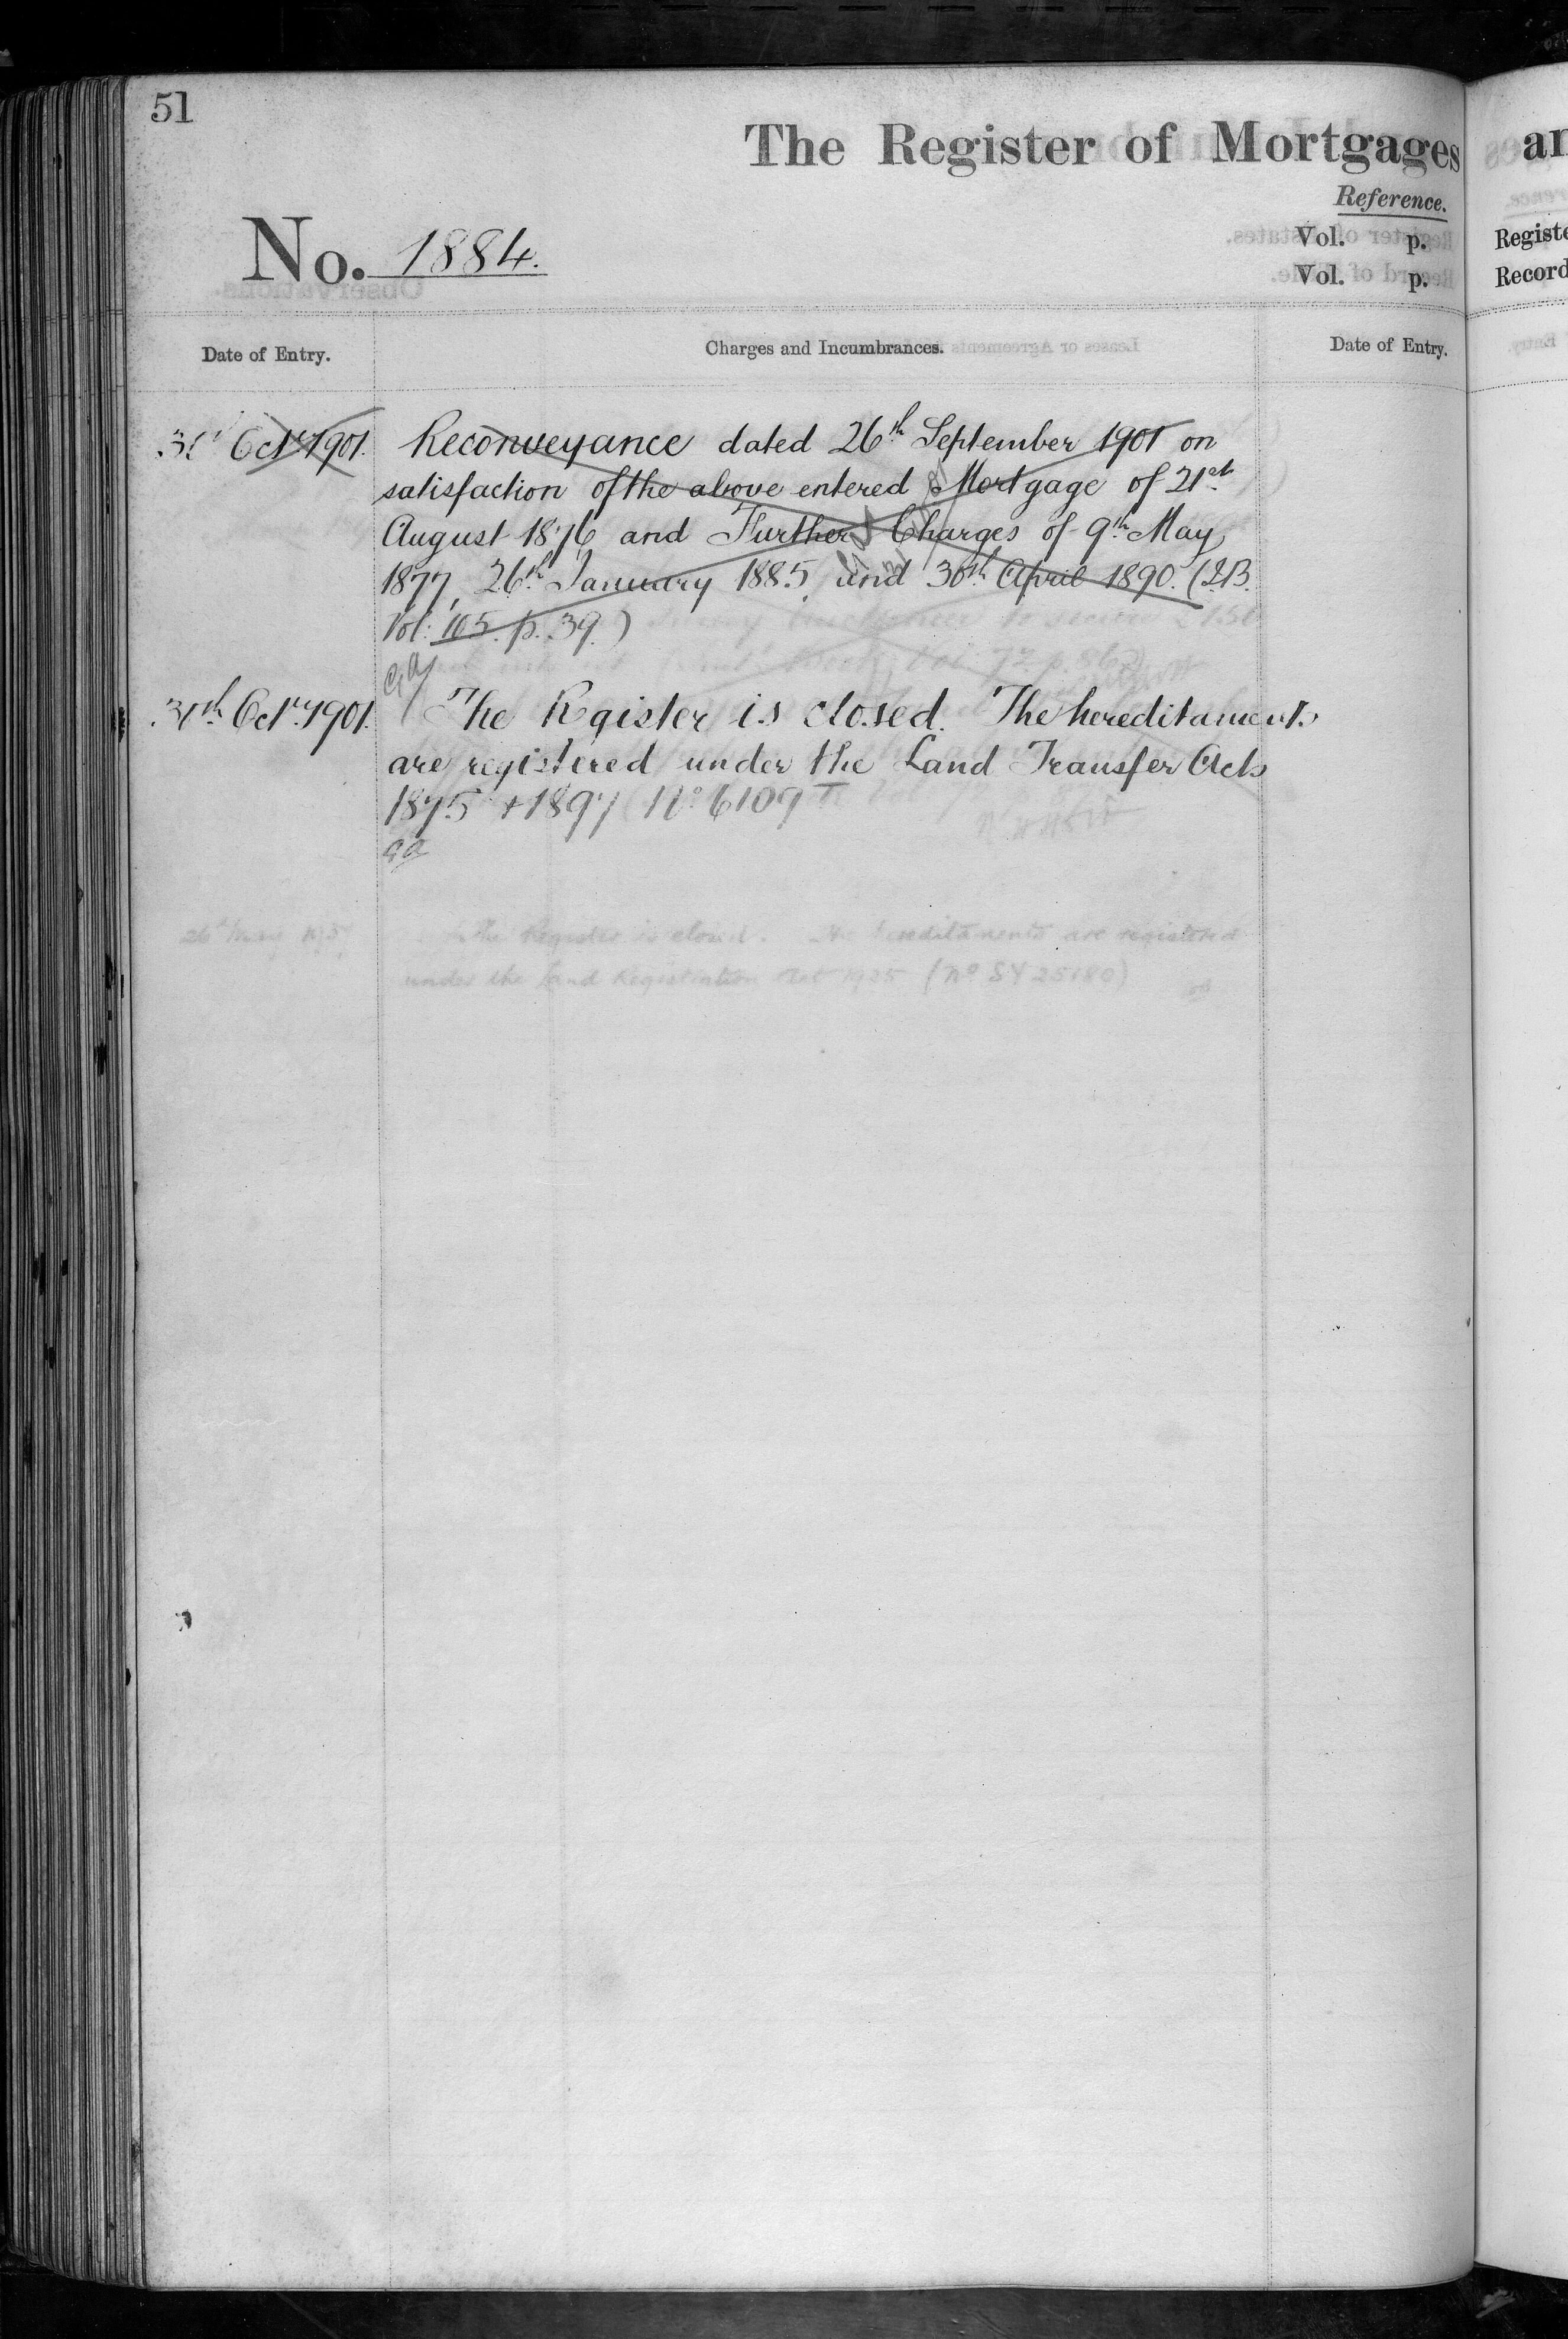 51
The Register of Mortgages
Reference.
Vol. p.
Vol. p.
No. 1884.
Date of Entry.
Charges and Incumbrances.
Date of Entry.
31st Octr. 1901.
Reconveyance dated 26th September 1901 on
satisfaction of the above entered Mortgage of 21st
August 1876 and Further Charges of 9th May
1877, 26th January 1885, and 30th April 1890. (I.B.
Vol: 105. p. 39.)
31st Octr. 1901.
The Register is closed. The hereditaments
are registered under the Land Transfer Acts
1875 + 1897 No 6109
The Register is closed. The hereditaments are registered
under the Land Registration Act 1925 (No SY 25180)
an
Registe
Record